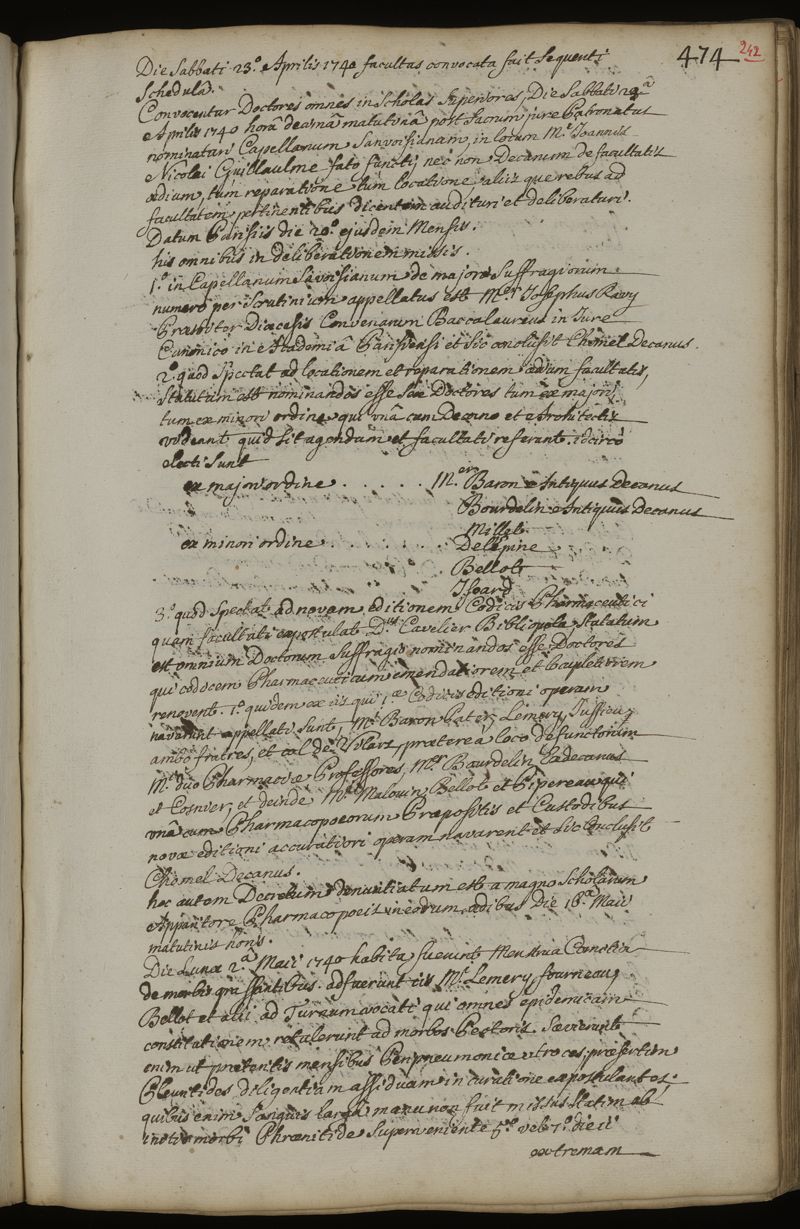 474 242
Die Sabbati 23.° Aprilis 1740 facultas convocata fuit sequenti
Schedulâ.
Convocentur Doctores omnes in Scholas Superiores, Die Sabbati 23â
Aprilis 1740 horâ decimâ matutinâ post sacrum jure Patronatus
nominaturi Capellanum Sanvoisianum, in locum M.i Joannis
Nicolai Guillaulme fato functi, nec non Decanum de facultatis
ædium, tum reparatione tum locatione, aliis que rebus ad
facultatem pertinentibus dicentem audituri et deliberaturi.
Datum Parisiis die 20.° ejusdem Mensis.
his omnibus in deliberationem missis.
1.° in Capellanum Savoisianum de majore Suffragiorum
numero per Scrutinium appellatus est M.er Josephus Ravy
Præsbiter Diœcesis Convenarum Baccalaureus in Jure
Canonico in Academiâ Parisiensi et sic conclusit Chomel Decanus.
2.° quod Spectat ad locationem et reparationem ædium facultatis,
Statutum est nominandos esse sex Doctores tum ex majori
tum ex minori ordine, qui unâ cum Decano et Architectis
videant quid sit agendum et facultati referant. idcirco
electi sunt
ex majori ordine . . . . . . M.ri Baron Antiquus Decanus
Bourdelin Antiquus Decanus
Millet
ex minori ordine . . . . . . . . Delepine
Bellot
Isoard
3.° quod Spectat ad novam editionem Codicis Pharmaceutici
quam facultati expostulat D.us Cavelier Bibliopola Statutum
est omnium Doctorum Suffragiis nominandos esse Doctores
qui codicem Pharmaceuticum emendatiorem et locupletiorem
renovent. 1.° quidem ex iis qui 1.æ Codicis editioni operam
navarint appellati sunt M.ri Baron Pater, Lemery, Jussieu
ambo fratres, et Col de Vilars, prætereà loco defunctorum
M.ri duo Pharmaciæ Professores, M.ri Bourdelin Exdecanus
et Cosnier, et deinde M.ri Malouin, Bellot et Pipereau qui
unâ cum Pharmacopoeorum Præpositis et Custodibus
novæ editioni accuratiori operam navarent et sic Conclusit
Chomel Decanus.
hoc autem Decretum denuntiatum est a magno Scholarum
Apparitore Pharmacopoeis in eorum ædibus Die 18.â Maii
matutinis horis.
Die Lunæ 2.â Maii 1740 habita fuerunt Menstrua Comitia
de morbis grassantibus. adfuerunt iis M.ri Lemery, fourneau,
Bellot et alii ad Turnum vocati qui omnes epidemicam
constitutionem retulerunt ad morbos Pectoris. Sævierunt
enim ut præteritis mensibus Peripneumoniæ atroces, præsertim
Pleuritides diligentiam assiduam in curatione expostulantes:
quibus enim Sanguis largâ manu non fuit missus statim ab
initio morbi Phrænitide superveniente 5.° vel 7.° die ii
extremam